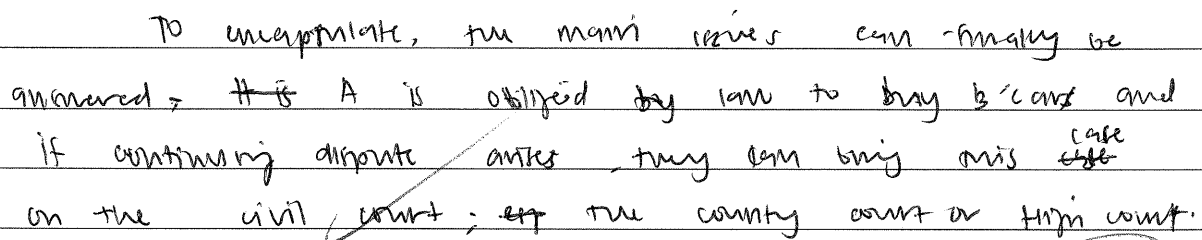 To encapsulate, the main issues can finally be
answered, It is A is obliged by law to buy B's car and
if continuing dispute arises, they can bring this case
on the civil court; the county court or High court.